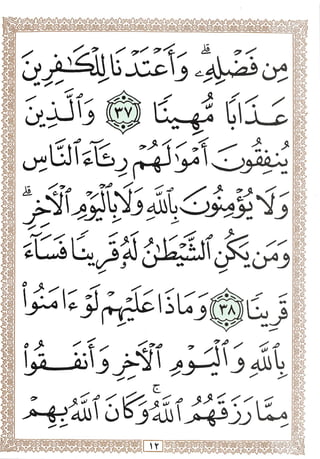 مِن فَضْلِهِۦۗ وَأَعْتَدْنَا لِلْكَٰفِرِينَ
عَذَابًا مُّهِينًا ٣٧ وَٱلَّذِينَ
يُنفِقُونَ أَمْوَٰلَهُمْ رِئَآءَ ٱلنَّاسِ
وَلَا يُؤْمِنُونَ بِٱللَّهِ وَلَا بِٱلْيَوْمِ ٱلْأَخِرِۗ
وَمَن يَكُنِ ٱلشَّيْطَٰنُ لَهُۥ قَرِينًا فَسَآءَ
قَرِينًا ٣٨ وَمَاذَا عَلَيْهِمْ لَوْ ءَامَنُوا۟
بِٱللَّهِ وَٱلْيَوْمِ ٱلْأَخِرِ وَأَنفَقُوا۟
مِمَّا رَزَقَهُمُ ٱللَّهُۚ وَكَانَ ٱللَّهُ بِهِمْ
١٢